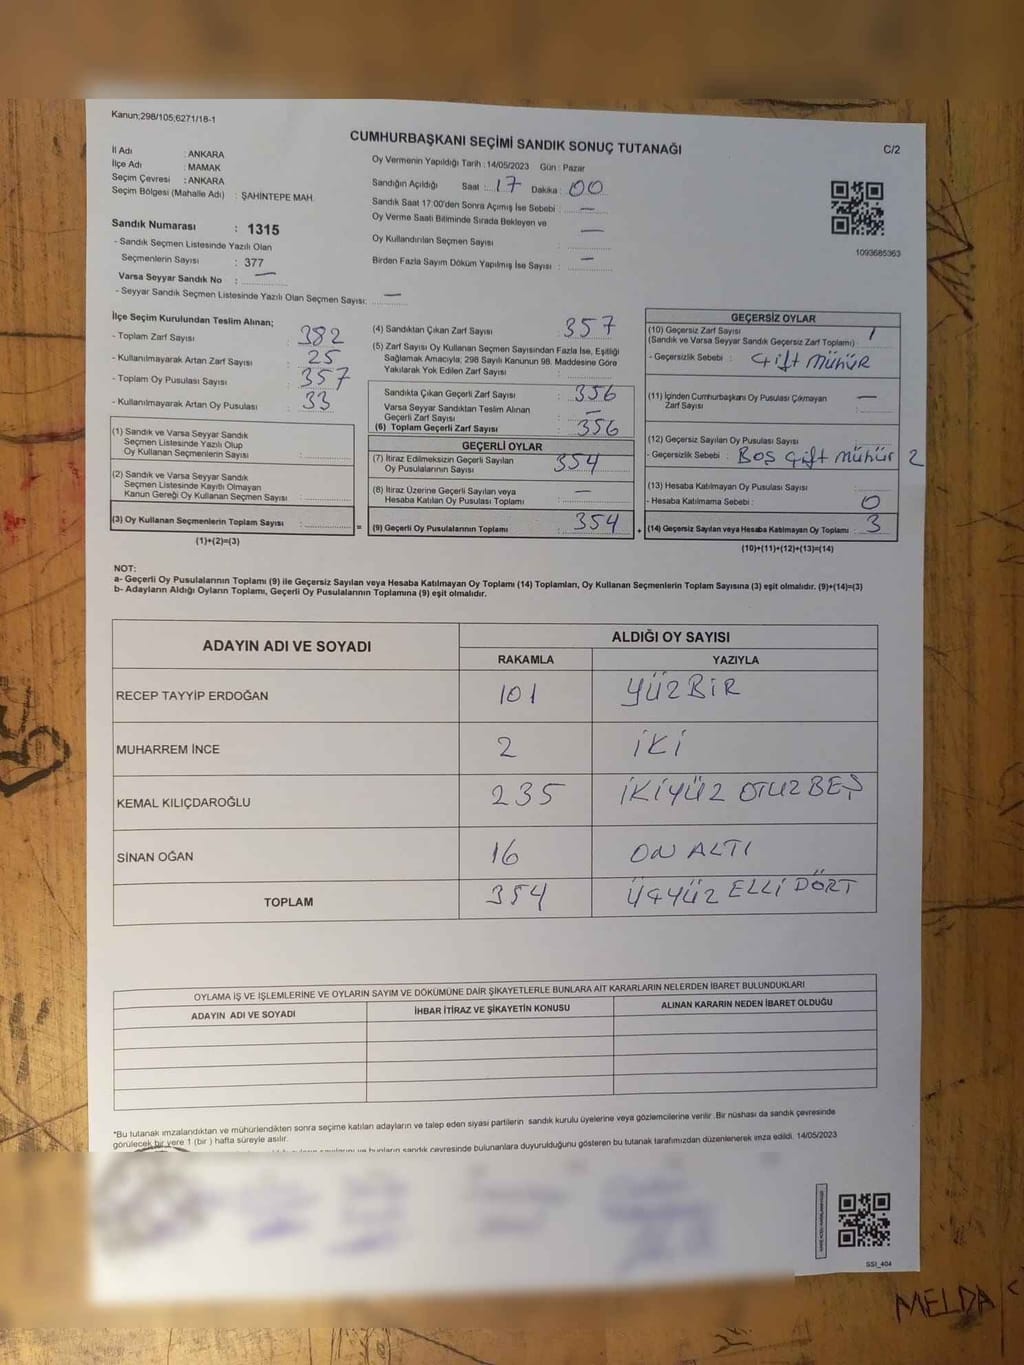 Kanun;298/105;6271/18-1
CUMHURBAŞKANI SEÇİMİ SANDIK SONUÇ TUTANAĞI
C/2
İl Adı : ANKARA
İlçe Adı : MAMAK
Seçim Çevresi : ANKARA
Seçim Bölgesi (Mahalle Adı) : ŞAHİNTEPE MAH.
Oy Vermenin Yapıldığı Tarih : 14/05/2023 Gün : Pazar
Sandığın Açıldığı Saat : 17 Dakika : 00
Sandık Saat 17:00'den Sonra Açımış İse Sebebi : —
Oy Verme Saati Bitiminde Sırada Bekleyen ve
Oy Kullandırılan Seçmen Sayısı : —
Birden Fazla Sayım Döküm Yapılmış İse Sayısı : —
1093685363
Sandık Numarası : 1315
- Sandık Seçmen Listesinde Yazılı Olan
Seçmenlerin Sayısı : 377
Varsa Seyyar Sandık No : —
- Seyyar Sandık Seçmen Listesinde Yazılı Olan Seçmen Sayısı: —
İlçe Seçim Kurulundan Teslim Alınan;
- Toplam Zarf Sayısı : 382
- Kullanılmayarak Artan Zarf Sayısı : 25
- Toplam Oy Pusulası Sayısı : 357
- Kullanılmayarak Artan Oy Pusulası : 33
(1) Sandık ve Varsa Seyyar Sandık
Seçmen Listesinde Yazılı Olup
Oy Kullanan Seçmenlerin Sayısı :
(2) Sandık ve Varsa Seyyar Sandık
Seçmen Listesinde Kayıtlı Olmayan
Kanun Gereği Oy Kullanan Seçmen Sayısı :
(3) Oy Kullanan Seçmenlerin Toplam Sayısı : =
(1)+(2)=(3)
(4) Sandıktan Çıkan Zarf Sayısı : 357
(5) Zarf Sayısı Oy Kullanan Seçmen Sayısından Fazla İse, Eşitliği
Sağlamak Amacıyla; 298 Sayılı Kanunun 98. Maddesine Göre
Yakılarak Yok Edilen Zarf Sayısı :
Sandıkta Çıkan Geçerli Zarf Sayısı : 356
Varsa Seyyar Sandıktan Teslim Alınan
Geçerli Zarf Sayısı : —
(6) Toplam Geçerli Zarf Sayısı : 356
GEÇERLİ OYLAR
(7) İtiraz Edilmeksizin Geçerli Sayılan
Oy Pusulalarının Sayısı : 354
(8) İtiraz Üzerine Geçerli Sayılan veya
Hesaba Katılan Oy Pusulası Toplamı : —
(9) Geçerli Oy Pusulalarının Toplamı : 354 +
GEÇERSİZ OYLAR
(10) Geçersiz Zarf Sayısı
(Sandık ve Varsa Seyyar Sandık Geçersiz Zarf Toplamı) : 1
- Geçersizlik Sebebi : Çift MÜHÜR
(11) İçinden Cumhurbaşkanı Oy Pusulası Çıkmayan
Zarf Sayısı : —
(12) Geçersiz Sayılan Oy Pusulası Sayısı :
- Geçersizlik Sebebi : Boş Çift MÜHÜR 2
(13) Hesaba Katılmayan Oy Pusulası Sayısı :
- Hesaba Katılmama Sebebi : 0
(14) Geçersiz Sayılan veya Hesaba Katılmayan Oy Toplamı : 3
(10)+(11)+(12)+(13)=(14)
NOT:
a- Geçerli Oy Pusulalarının Toplamı (9) ile Geçersiz Sayılan veya Hesaba Katılmayan Oy Toplamı (14) Toplamları, Oy Kullanan Seçmenlerin Toplam Sayısına (3) eşit olmalıdır. (9)+(14)=(3)
b- Adayların Aldığı Oyların Toplamı, Geçerli Oy Pusulalarının Toplamına (9) eşit olmalıdır.
ADAYIN ADI VE SOYADI ALDIĞI OY SAYISI
RAKAMLA YAZIYLA
RECEP TAYYİP ERDOĞAN 101 YÜZBİR
MUHARREM İNCE 2 İKİ
KEMAL KILIÇDAROĞLU 235 İKİYÜZ OTUZBEŞ
SİNAN OĞAN 16 ON ALTI
TOPLAM 354 ÜÇYÜZ ELLİ DÖRT
OYLAMA İŞ VE İŞLEMLERİNE VE OYLARIN SAYIM VE DÖKÜMÜNE DAİR ŞİKAYETLERLE BUNLARA AİT KARARLARIN NELERDEN İBARET BULUNDUKLARI
ADAYIN ADI VE SOYADI İHBAR İTİRAZ VE ŞİKAYETİN KONUSU ALINAN KARARIN NEDEN İBARET OLDUĞU
*Bu tutanak imzalandıktan ve mühürlendikten sonra seçime katılan adayların ve talep eden siyasi partilerin sandık kurulu üyelerine veya gözlemcilerine verilir .Bir nüshası da sandık çevresinde
görülecek bir yere 1 (bir ) hafta süreyle asılır.
ve bunların sandık çevresinde bulunanlara duyurulduğunu gösteren bu tutanak tarafımızdan düzenlenerek imza edildi. 14/05/2023
SSI_404
MELDA